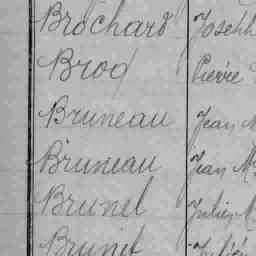 Brochard Joseph
Brod Pierre
Bruneau Jean M
Bruneau Jean M
Brunel Julien M
Brunet Julien